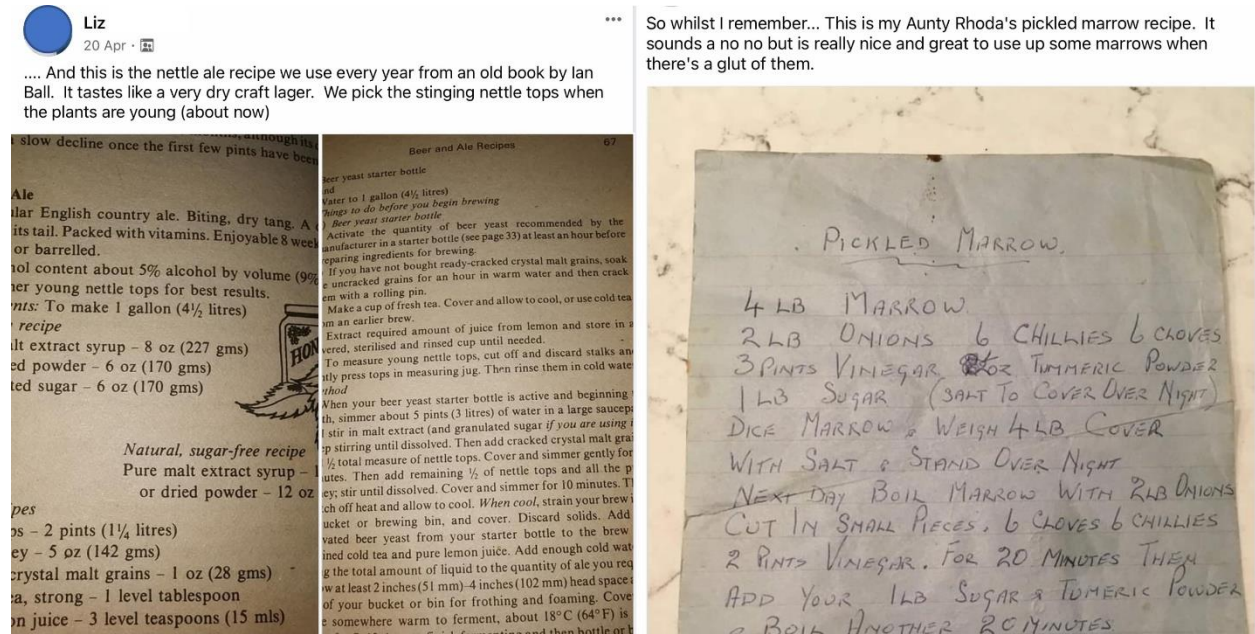 Liz
20 Apr
.... And this is the nettle ale recipe we use every year from an old book by Ian
Ball. It tastes like a very dry craft lager. We pick the stinging nettle tops when
the plants are young (about now)
slow decline once the first few pints have been
Ale
lar English country ale. Biting, dry tang. A
its tail. Packed with vitamins. Enjoyable 8 week
or barrelled.
ol content about 5% alcohol by volume (9%
her young nettle tops for best results.
nts: To make 1 gallon (4½ litres)
recipe
lt extract syrup – 8 oz (227 gms)
ed powder – 6 oz (170 gms)
ted sugar – 6 oz (170 gms)
HON
Natural, sugar-free recipe
Pure malt extract syrup – 1
or dried powder – 12 oz
pes
ps – 2 pints (1¼ litres)
ey – 5 oz (142 gms)
crystal malt grains – 1 oz (28 gms)
a, strong – 1 level tablespoon
on juice – 3 level teaspoons (15 mls)
Beer and Ale Recipes 67
Beer yeast starter bottle
nd
Water to 1 gallon (4½ litres)
Things to do before you begin brewing
Beer yeast starter bottle
Activate the quantity of beer yeast recommended by the
anufacturer in a starter bottle (see page 33) at least an hour before
eparing ingredients for brewing.
If you have not bought ready-cracked crystal malt grains, soak
e uncracked grains for an hour in warm water and then crack
em with a rolling pin.
Make a cup of fresh tea. Cover and allow to cool, or use cold tea
om an earlier brew.
Extract required amount of juice from lemon and store in a
vered, sterilised and rinsed cup until needed.
To measure young nettle tops, cut off and discard stalks an
tly press tops in measuring jug. Then rinse them in cold wate
thod
When your beer yeast starter bottle is active and beginning
th, simmer about 5 pints (3 litres) of water in a large saucep
stir in malt extract (and granulated sugar if you are using
p stirring until dissolved. Then add cracked crystal malt grai
½ total measure of nettle tops. Cover and simmer gently for
utes. Then add remaining ½ of nettle tops and all the p
ey; stir until dissolved. Cover and simmer for 10 minutes. T
ch off heat and allow to cool. When cool, strain your brew i
ucket or brewing bin, and cover. Discard solids. Add
vated beer yeast from your starter bottle to the brew
ined cold tea and pure lemon juice. Add enough cold wat
g the total amount of liquid to the quantity of ale you req
w at least 2 inches (51 mm)–4 inches (102 mm) head space
of your bucket or bin for frothing and foaming. Cove
e somewhere warm to ferment, about 18°C (64°F) is
So whilst I remember... This is my Aunty Rhoda's pickled marrow recipe. It
sounds a no no but is really nice and great to use up some marrows when
there's a glut of them.
PICKLED MARROW.
4 LB MARROW
2 LB ONIONS 6 CHILLIES 6 CLOVES
3 PINTS VINEGAR OZ TUMMERIC POWDER
1 LB SUGAR (SALT TO COVER OVER NIGHT)
DICE MARROW & WEIGH 4 LB COVER
WITH SALT & STAND OVER NIGHT
NEXT DAY BOIL MARROW WITH 2LB ONIONS
CUT IN SMALL PIECES. 6 CLOVES 6 CHILLIES
2 PINTS VINEGAR. FOR 20 MINUTES THEN
ADD YOUR 1LB SUGAR & TUMERIC POWDER
& BOIL ANOTHER 20 MINUTES